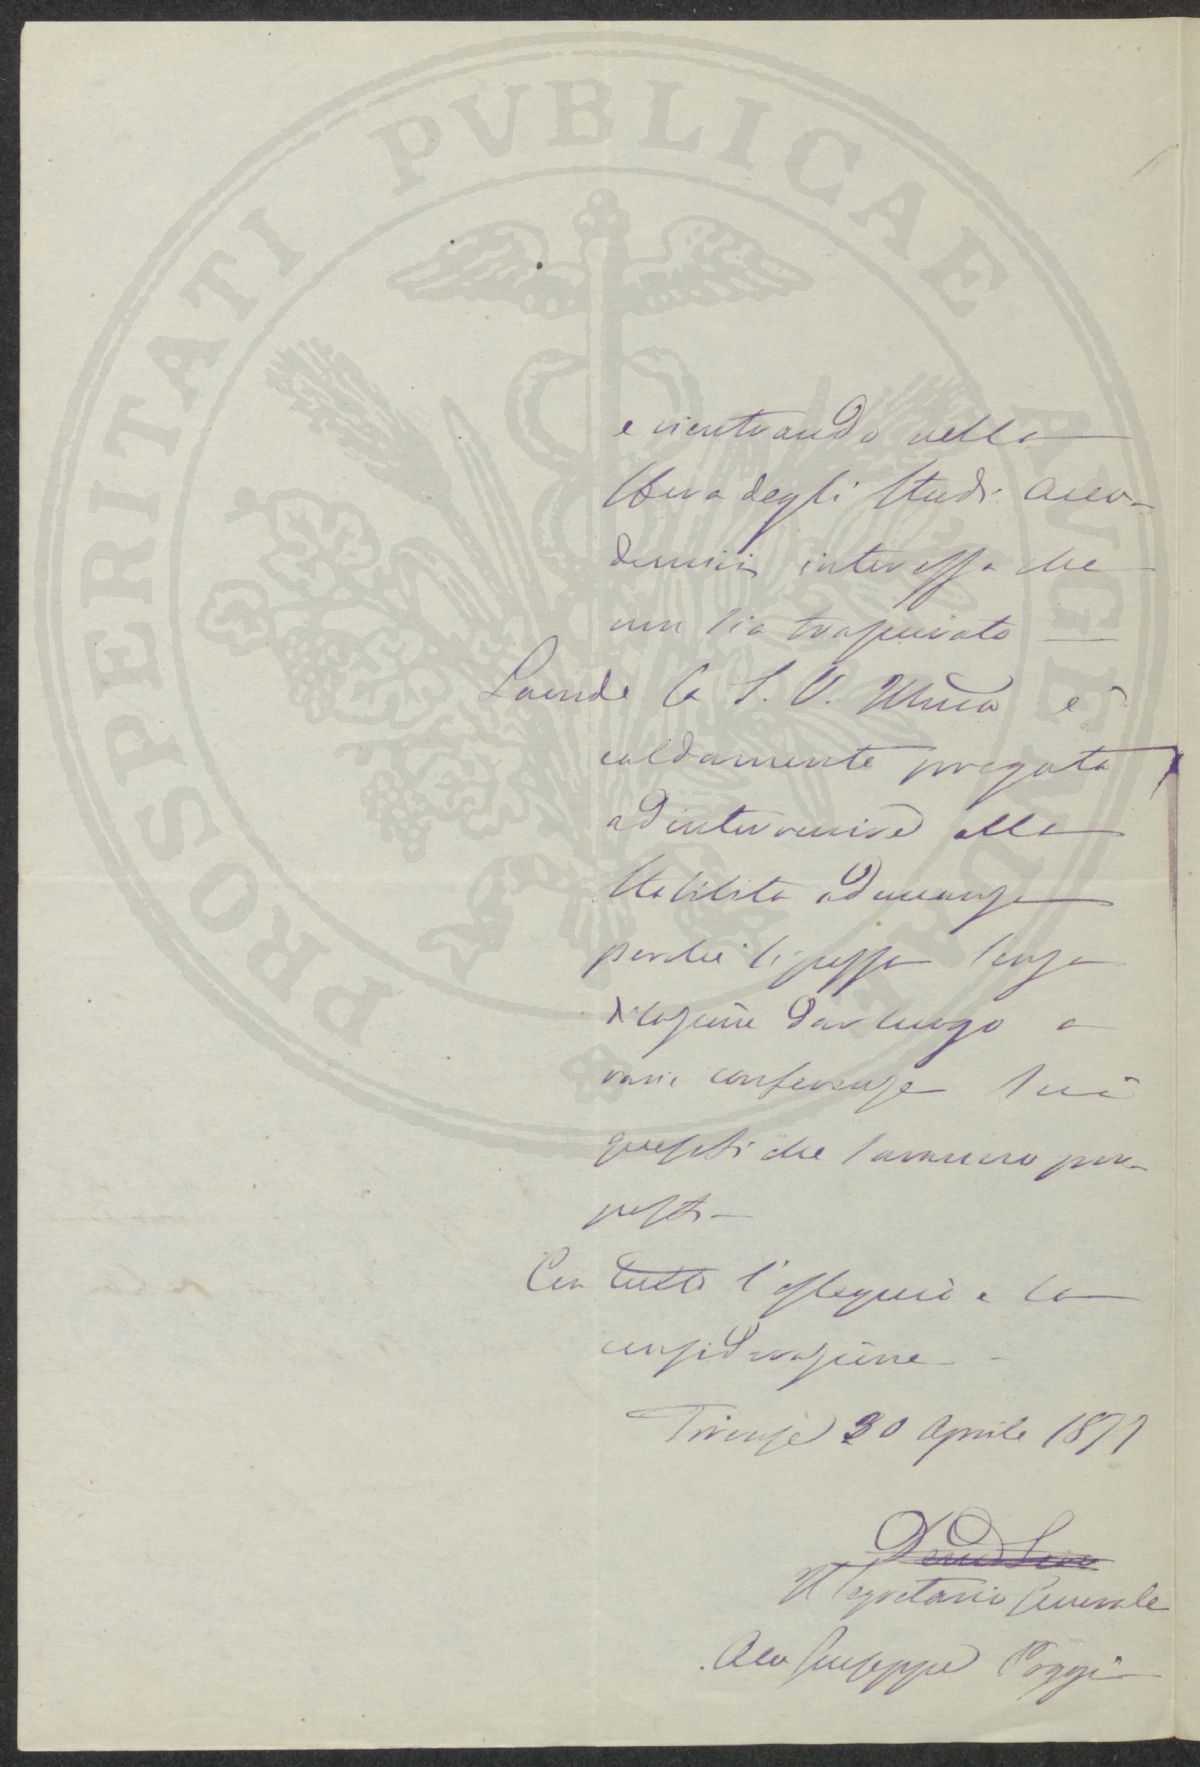 PROSPERITATI PVBLICAE AVGENDAE
e rientrando nella
sfera degli Studi Acca-
demici interessa che
non sia trascurato —
Laonde la S. V. Illma è
caldamente pregata
ad intervenire alla
stabilita adunanza
perchè si possa senza
dilazione dar luogo a
varie conferenze sui
quesiti che saranno pro-
posti —
Con tutto l'ossequio e la
considerazione —
Firenze 30 Aprile 1877
Il Segretario Generale
Avv Giuseppe Poggi